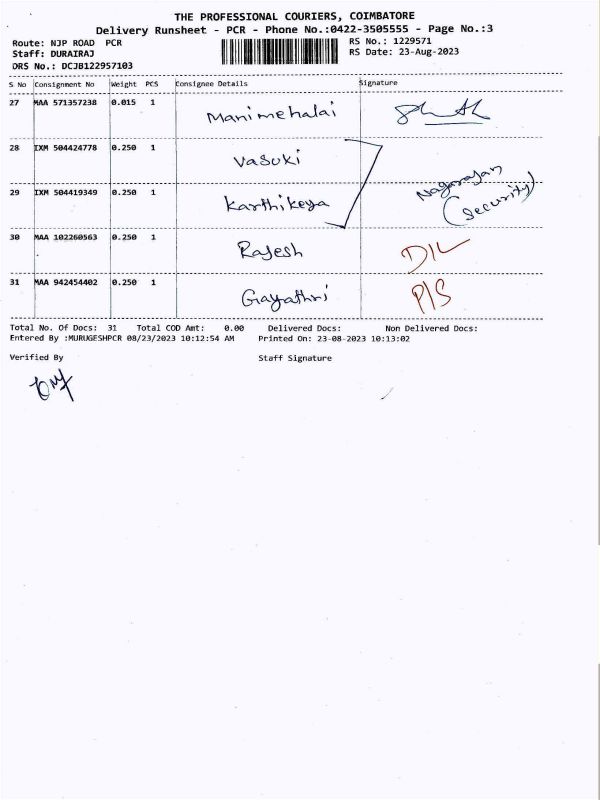 THE PROFESSIONAL COURIERS, COIMBATORE
Delivery Runsheet - PCR - Phone No.:0422-3505555 - Page No.:3
Route: NJP ROAD PCR RS No.: 1229571
Staff: DURAIRAJ RS Date: 23-Aug-2023
DRS No.: DCJB122957103
S No Consignment No Weight PCS Consignee Details Signature
27 MAA 571357238 0.015 1 Manimehalai
28 IXM 504424778 0.250 1 Vasuki
29 IXM 504419349 0.250 1 Karthikeya Nagarajan (Security)
30 MAA 102260563 0.250 1 Rajesh D/L
31 MAA 942454402 0.250 1 Gayathri P/S
Total No. Of Docs: 31 Total COD Amt: 0.00 Delivered Docs: Non Delivered Docs:
Entered By :MURUGESHPCR 08/23/2023 10:12:54 AM Printed On: 23-08-2023 10:13:02
Verified By Staff Signature